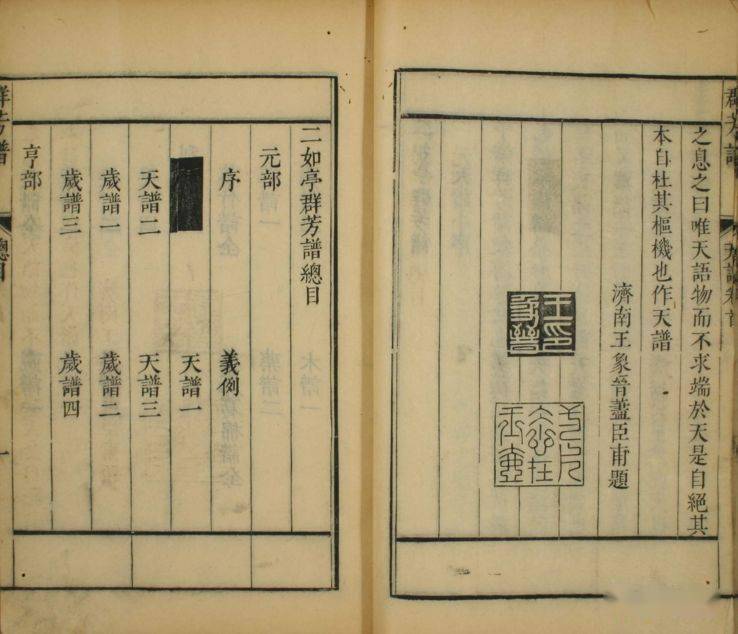 之息之曰唯天語物而不求端於天是自絕其
本自杜其樞機也作天譜
濟南王象晉藎臣甫題
王印象晉
二如亭群芳譜總目
元部
序 義例
天譜一
天譜二 天譜三
歲譜一 歲譜二
歲譜三 歲譜四
亨部
群芳譜
總目
一
群芳譜
天譜卷首